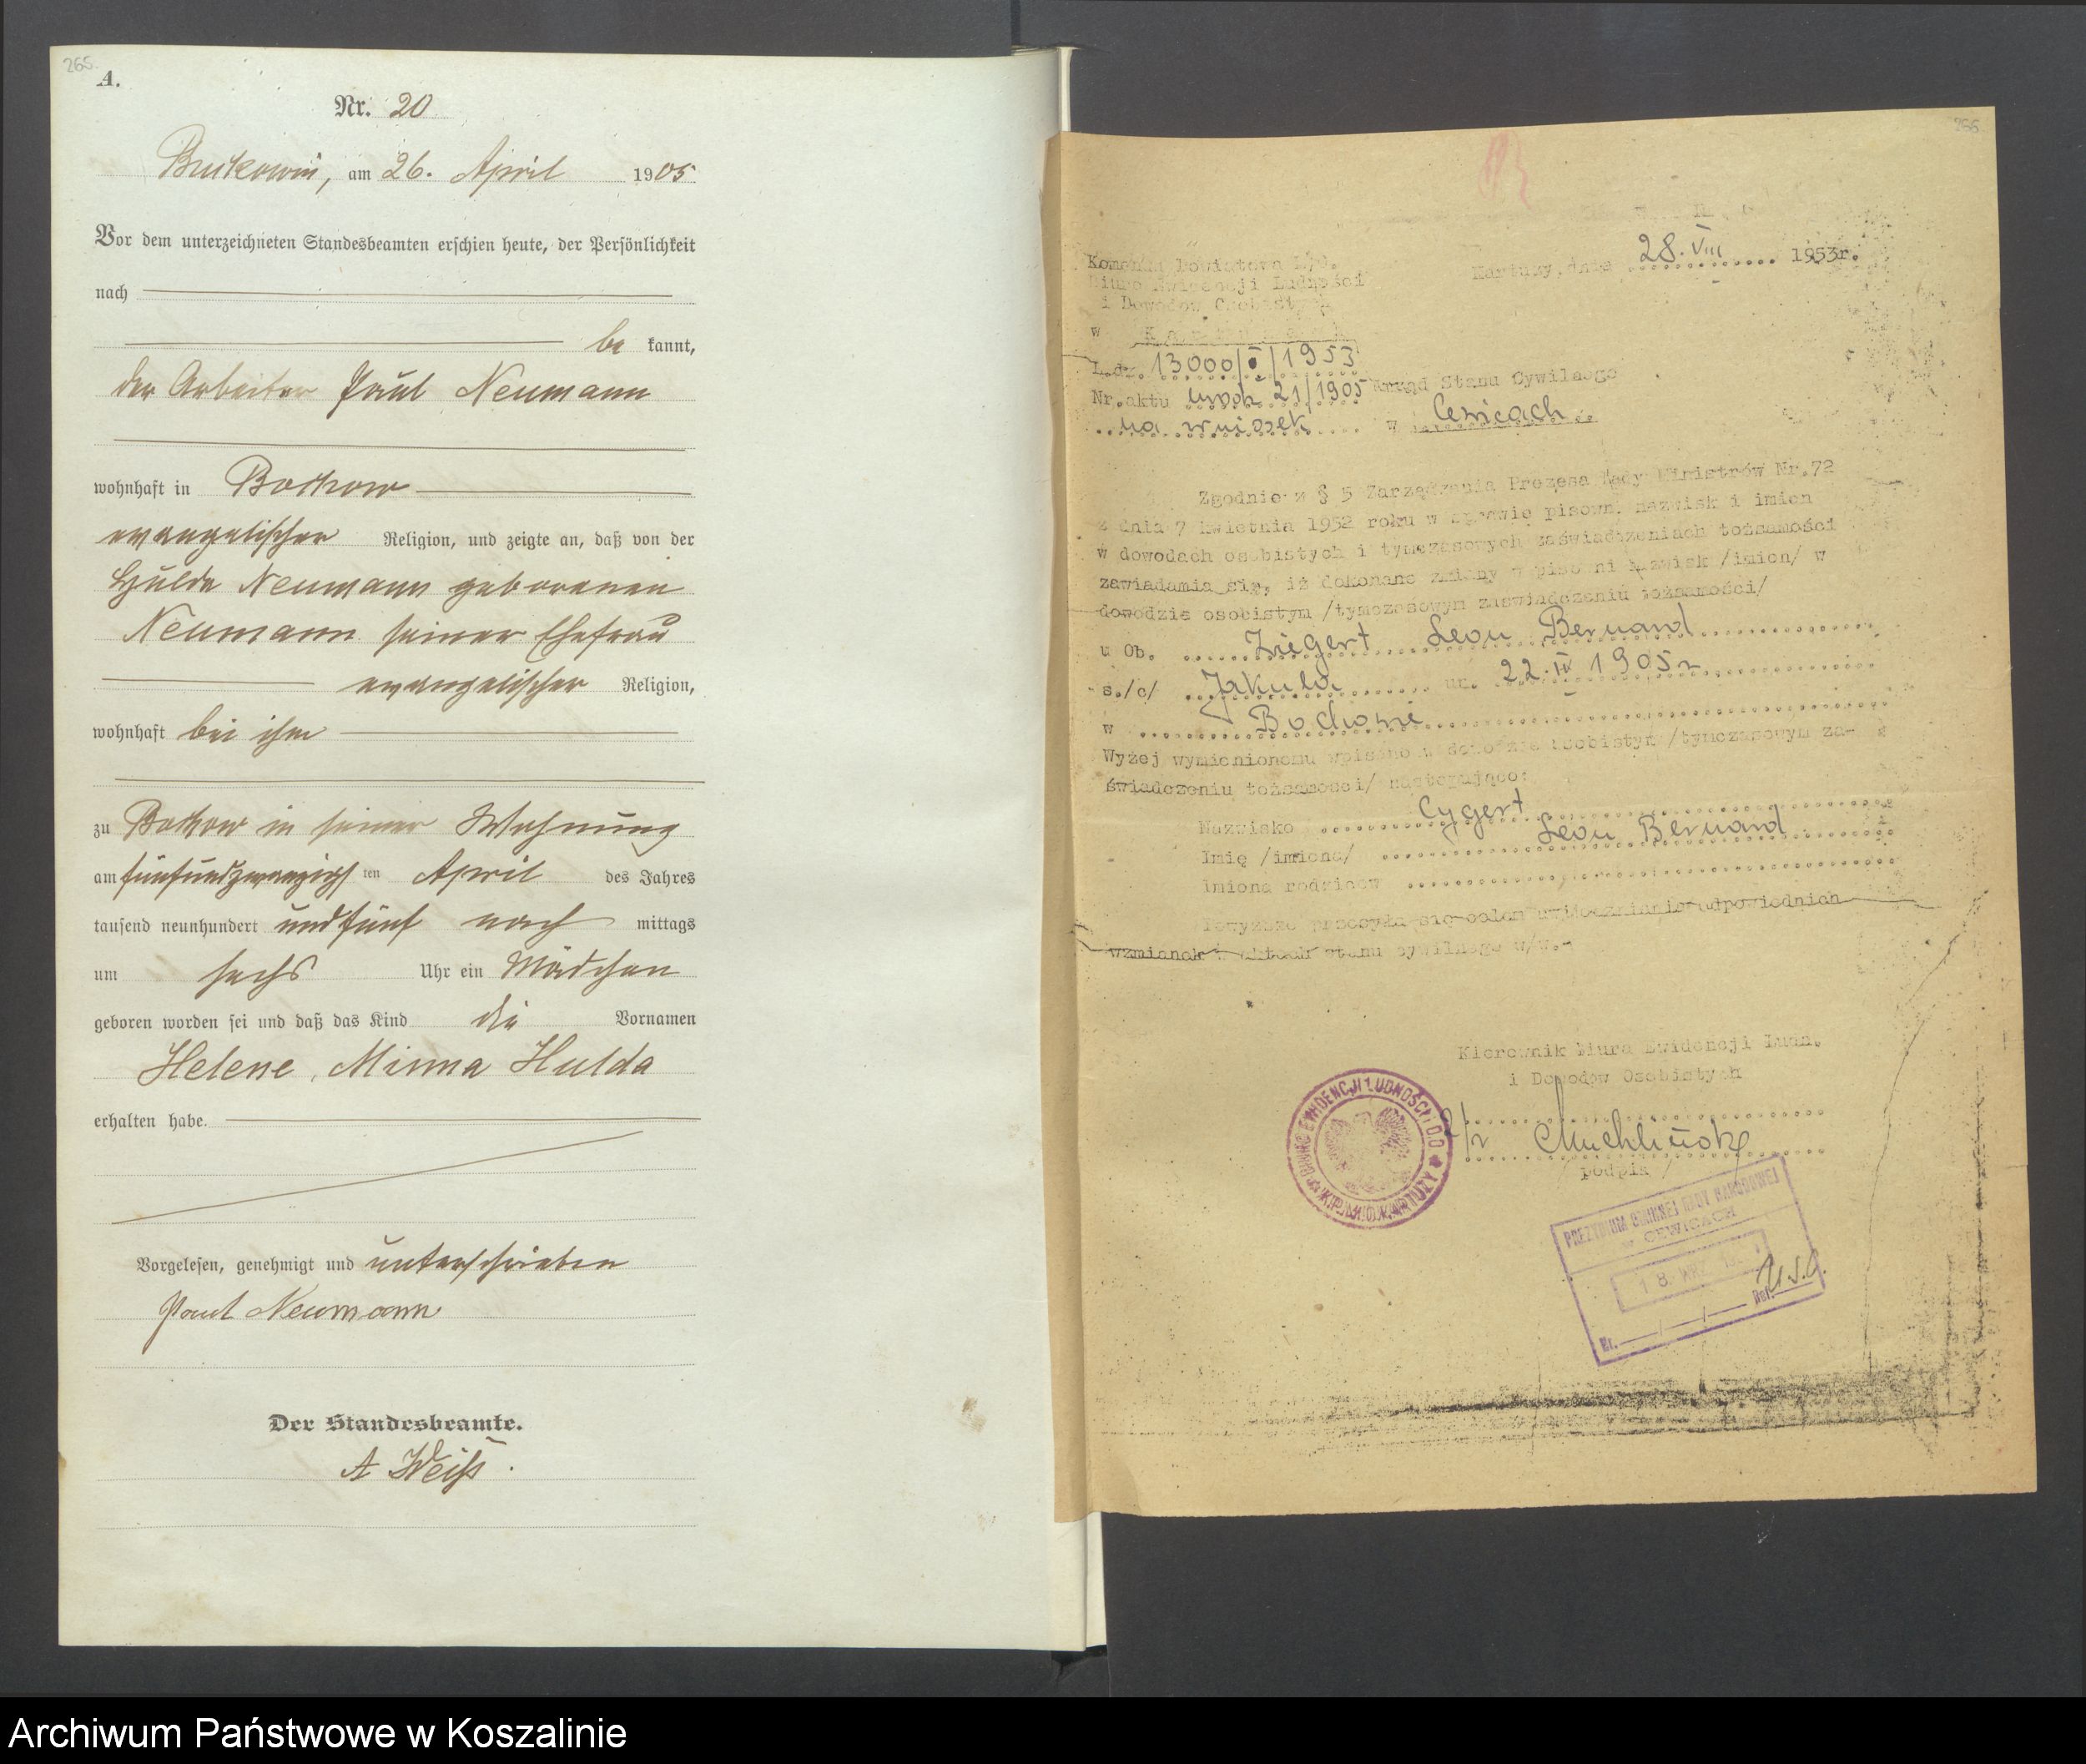 265.
A.
Nr. 20
Buckowin, am 26. April 1905
Vor dem unterzeichneten Standesbeamten erschien heute, der Persönlichkeit
nach
be kannt,
der Arbeiter Paul Neumann
wohnhaft in Bochow
evangelischer Religion, und zeigte an, daß von der
Hulda Neumann geborenen
Neumann seiner Ehefrau
evangelischer Religion,
wohnhaft bei ihm
zu Bochow in seiner Wohnung
am fünfundzwanzigs ten April des Jahres
tausend neunhundert und fünf nach mittags
um sechs Uhr ein Mädchen
geboren worden sei und daß das Kind die Vornamen
Helene, Minna Hulda
erhalten habe.
Vorgelesen, genehmigt und unterschrieben
Paul Neumann
Der Standesbeamte.
A Weiß.
266
28. VIII 1953r.
Kartuzy, dnia
Komenda Powiatowa M.O.
Biuro Ewidencji Ludności
i Dowodów Osobistych
w
L.dz. 13000/I/1953
Nr. aktu urodz. 21/1905 Urząd Stanu Cywilnego
na wniosek w Cewicach
Zgodnie z § 5 Zarządzenia Prezesa Rady Ministrów Nr. 72
z dnia 7 kwietnia 1952 roku w sprawie pisowni nazwisk i imion
w dowodach osobistych i tymczasowych zaświadczeniach tożsamości
zawiadamia się, iż dokonano zmiany w pisowni nazwisk /imion/ w
dowodzie osobistym /tymczasowym zaświadczeniu tożsamości/
u Ob. Ziegert Leon Bernard
s./c/ Jakuba ur. 22.IV 1905 r
w Bochowie
Wyżej wymienionemu wpisano w dowodzie osobistym /tymczasowym za-
świadczeniu tożsamości/ następująco:
Nazwisko Cygert
Imię /imiona/ Leon Bernard
Imiona rodziców
Powyższe przesyła się celem uwidocznienia odpowiednich
wzmianek w aktach stanu cywilnego w/w.-
Kierownik Biura Ewidencji Ludn.
i Dowodów Osobistych
/podpis/
BIURO EWIDENCJI LUDNOŚCI I D.O.
PREZYDIUM GMINNEJ RADY NARODOWEJ
w CEWICACH
18. WRZ.
Nr. Ref. U.S.C.
Archiwum Państwowe w Koszalinie